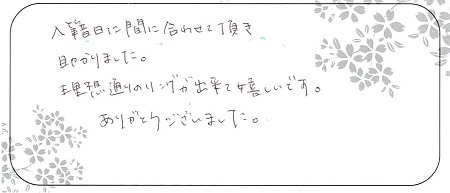 入籍日に間に合わせて頂き
助かりました。
理想通りのリングが出来て嬉しいです。
ありがとうございました。